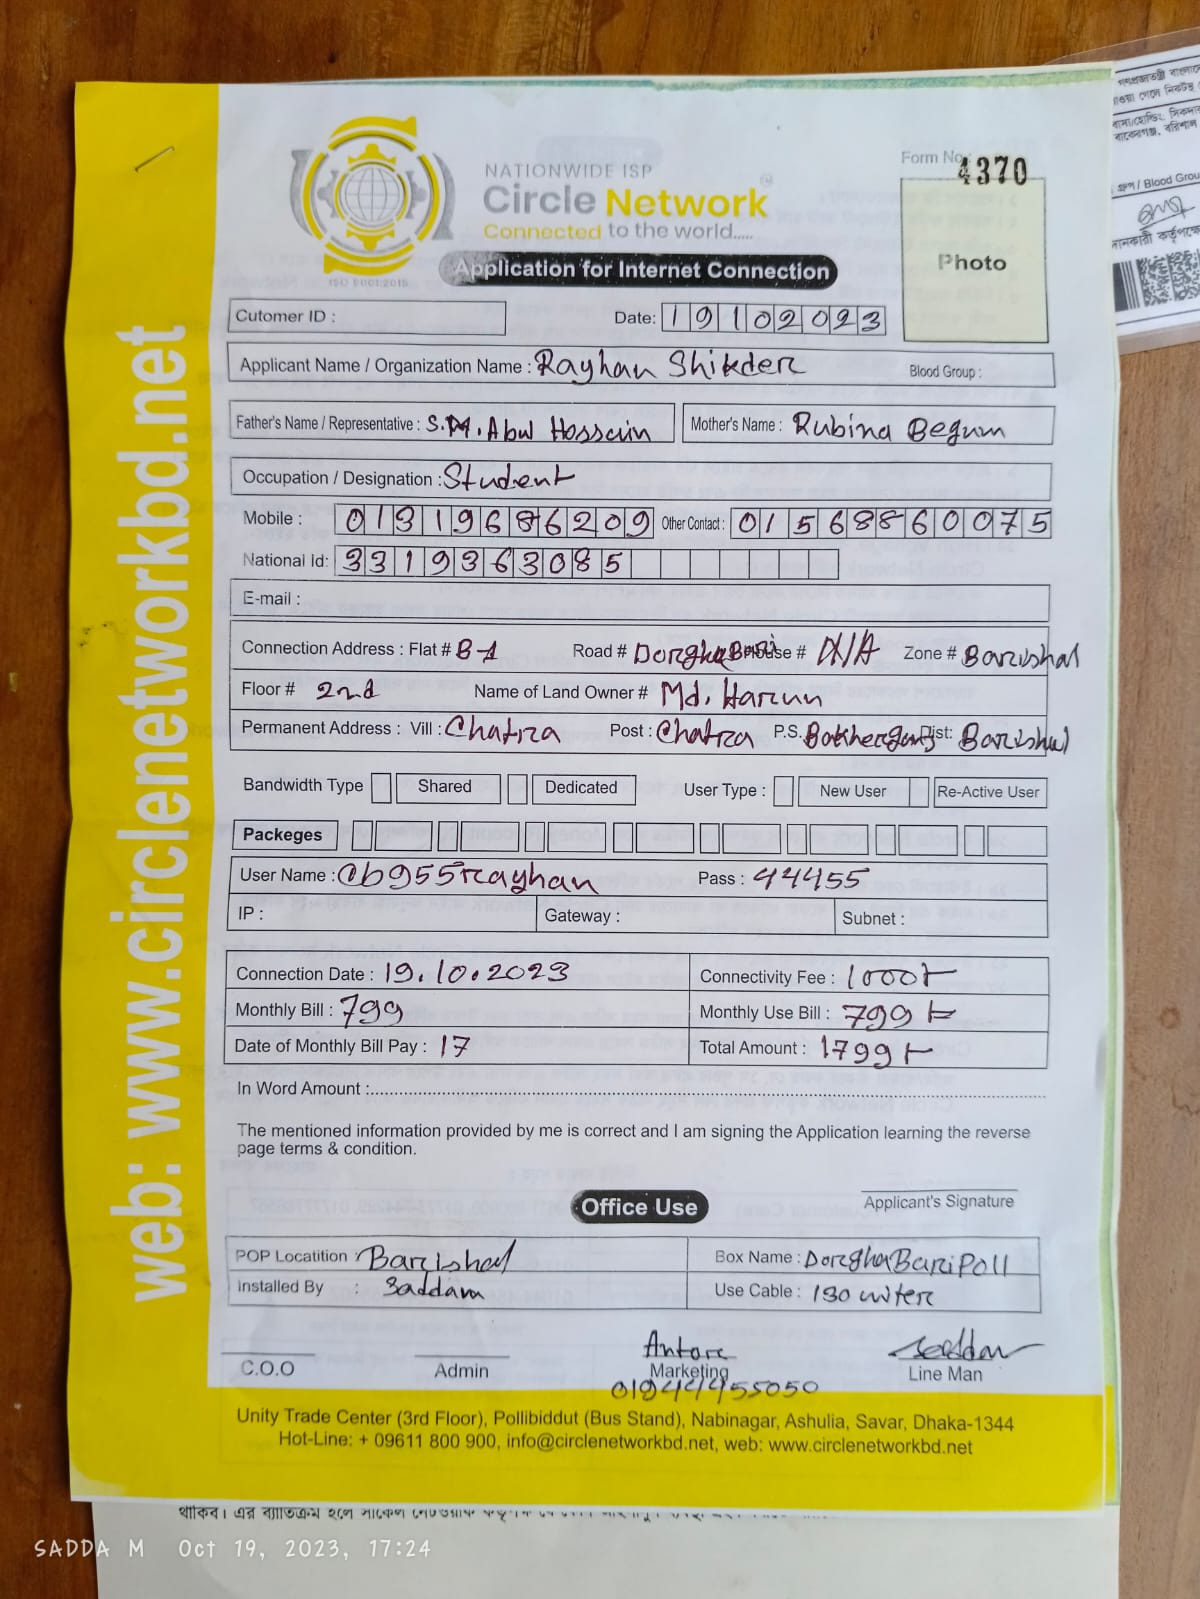 গণপ্রজাতন্ত্রী বাংলাদে
Form No.
4370
NATIONWIDE ISP
Circle Network
Connected to the world.....
ISO 9001:2015
Application for Internet Connection
Photo
/ Blood Grou
web: www.circlenetworkbd.net
Cutomer ID :
Date: 19102023
Applicant Name / Organization Name : Rayhan Shikder
Blood Group :
Father's Name / Representative : S.M. Abul Hossain
Mother's Name : Rubina Begum
Occupation / Designation : Student
Mobile : 01319686209 Other Contact : 01568860075
National Id: 3319363085
E-mail :
Connection Address : Flat # B-1 Road # Dorgha Bari House # N/A Zone # Barishal
Floor # 2nd Name of Land Owner # Md. Harun
Permanent Address : Vill : Chatra Post : Chatra P.S. Bakhergonj Dist: Barishal
Bandwidth Type Shared Dedicated User Type : New User Re-Active User
Packeges
User Name : cb955rayhan Pass : 44455
IP : Gateway : Subnet :
Connection Date : 19.10.2023 Connectivity Fee : 1000
Monthly Bill : 799 Monthly Use Bill : 799
Date of Monthly Bill Pay : 17 Total Amount : 1799
In Word Amount :
The mentioned information provided by me is correct and I am signing the Application learning the reverse
page terms & condition.
Applicant's Signature
Office Use
POP Locatition : Barishal Box Name : DorghaBari Poll
Installed By : Saddam Use Cable : 130 miter
Antore
Saddam
C.O.O Admin Marketing Line Man
01944455050
Unity Trade Center (3rd Floor), Pollibiddut (Bus Stand), Nabinagar, Ashulia, Savar, Dhaka-1344
Hot-Line: + 09611 800 900, info@circlenetworkbd.net, web: www.circlenetworkbd.net
থাকিব। এর ব্যতিক্রম হলে সার্কেল নেটওয়ার্ক
SADDA M Oct 19, 2023, 17:24